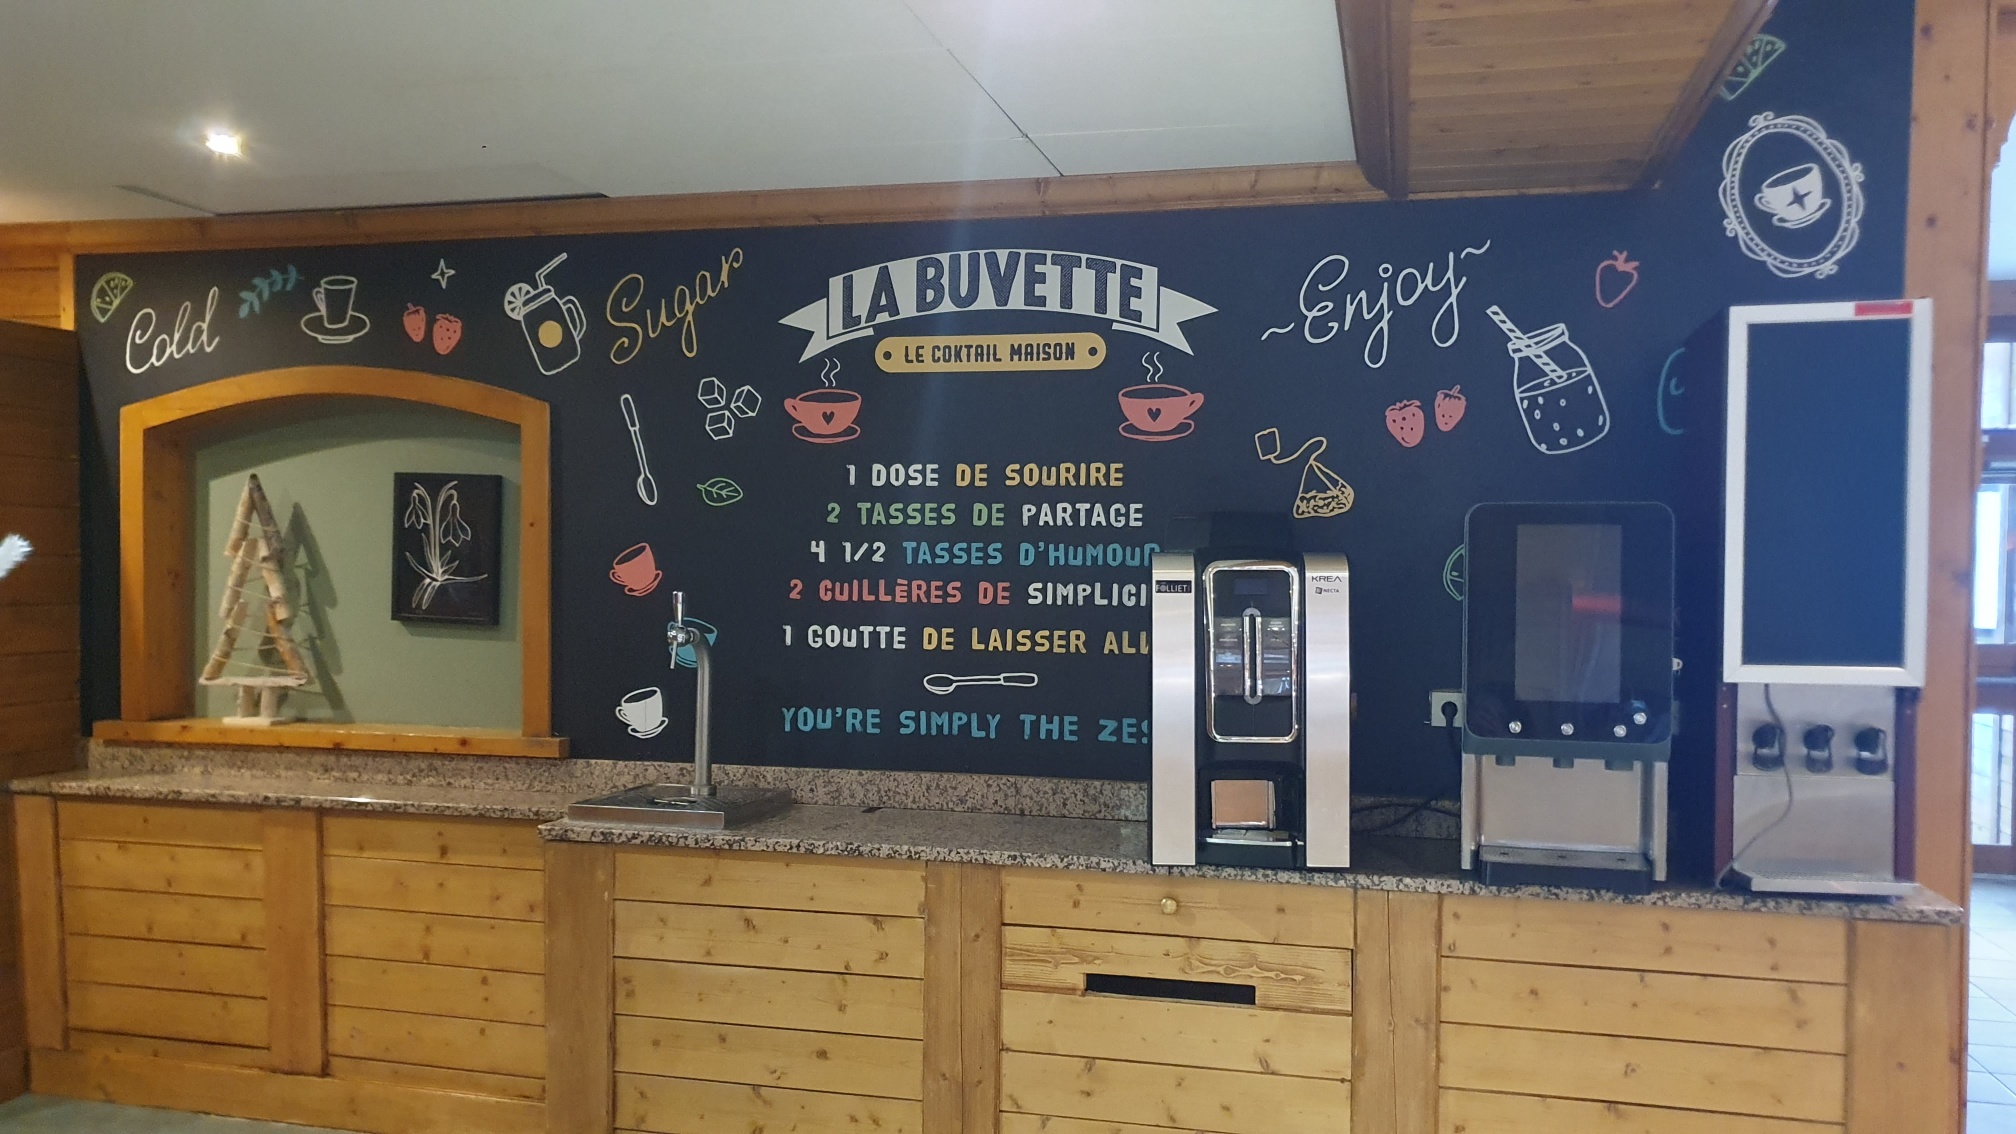 Cold
Sugar
LA BUVETTE
LE COKTAIL MAISON
~Enjoy~
1 DOSE DE SOURIRE
2 TASSES DE PARTAGE
4 1/2 TASSES D'HUMOUR
2 CUILLÈRES DE SIMPLICI
1 GOUTTE DE LAISSER ALL
YOU'RE SIMPLY THE ZES
FOLLIET
KREA
NECTA